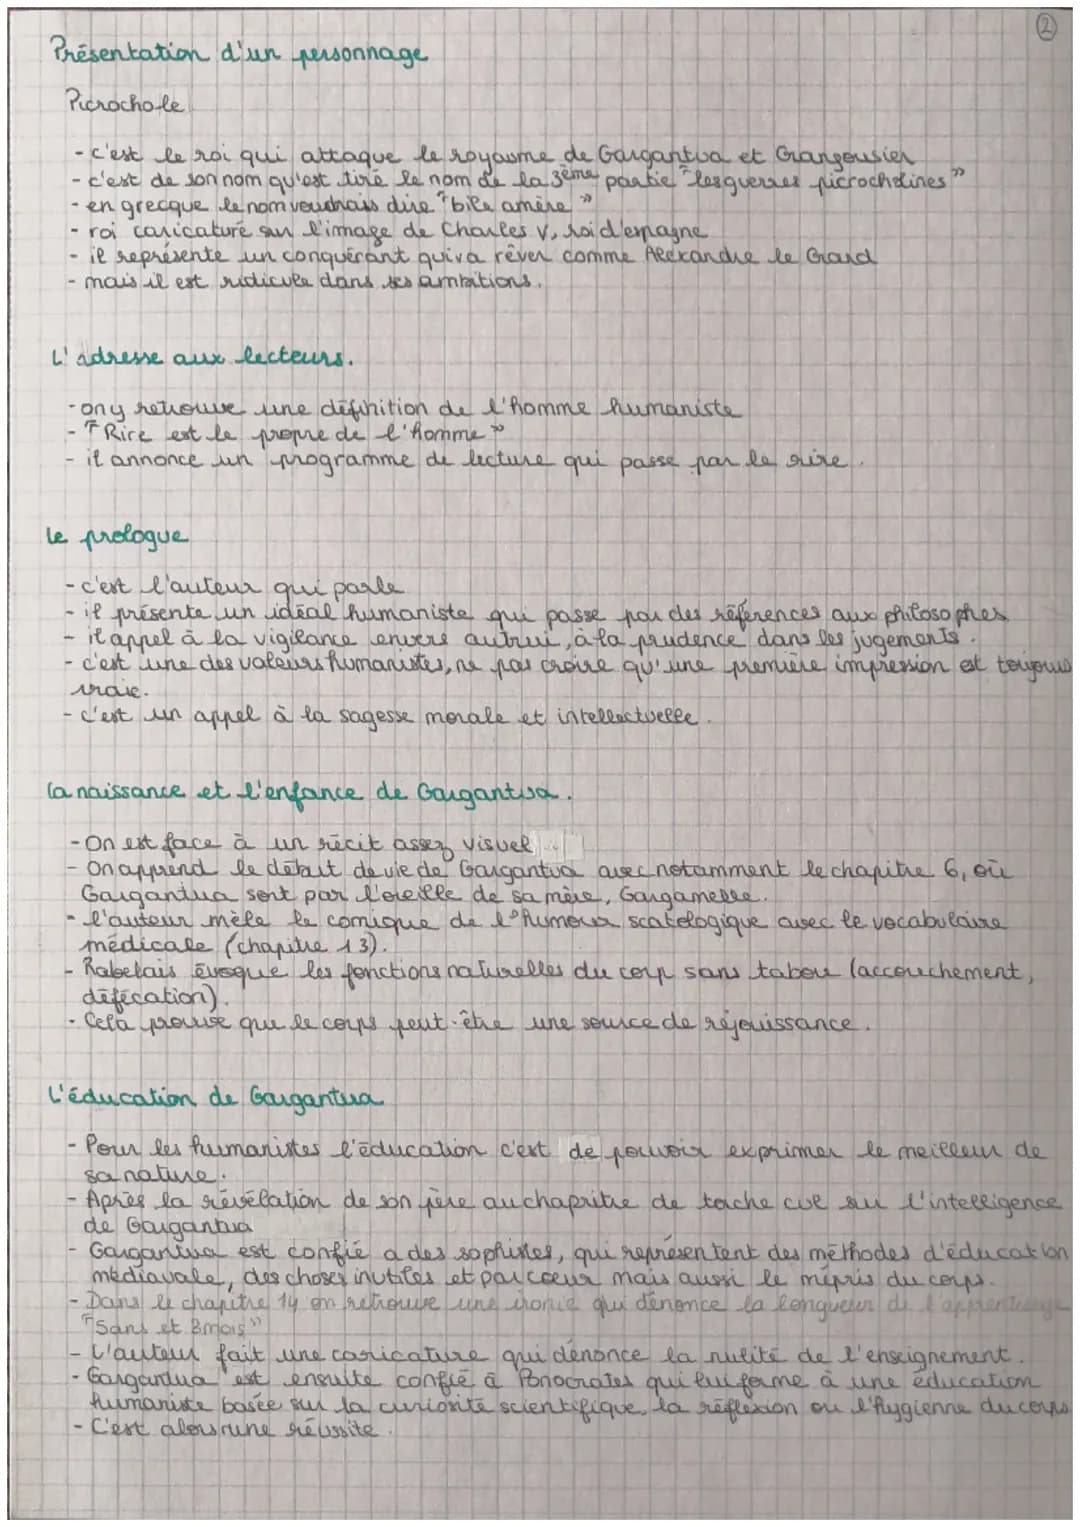 2
Présentation d'un personnage
Picrochole
- c'est le roi qui attaque le royaume de Gargantua et Grangousier
- c'est de son nom qu'est tiré le nom de la 3ème partie "les guerres picrocholines"
- en grecque le nom voudrais dire "bile amère"
- roi caricaturé sur l'image de Charles V, roi d'espagne
- il représente un conquérant qui va rêver comme Alexandre le Grand
- mais il est ridicule dans ses ambitions.
L'adresse aux lecteurs.
- on y retrouve une définition de l'homme humaniste
- "Rire est le propre de l'homme"
- il annonce un programme de lecture qui passe par le rire.
Le prologue
- c'est l'auteur qui parle
- il présente un idéal humaniste qui passe par des références aux philosophes
- il appel à la vigilance envers autrui, à la prudence dans les jugements.
- c'est une des valeurs humanistes, ne pas croire qu'une première impression est toujours
vraie.
- c'est un appel à la sagesse morale et intellectuelle.
La naissance et l'enfance de Gargantua.
- On est face à un récit assez visuel
- On apprend le début de vie de Gargantua avec notamment le chapitre 6, où
Gargantua sort par l'oreille de sa mère, Gargamelle.
- l'auteur mêle le comique de l'humour scatologique avec le vocabulaire
médicale (chapitre 13).
- Rabelais évoque les fonctions naturelles du corp sans tabou (accouchement,
défécation).
- Cela prouve que le corps peut-être une source de réjouissance.
L'éducation de Gargantua
- Pour les humanistes l'éducation c'est de pouvoir exprimer le meilleur de
sa nature.
- Après la révélation de son père au chapritre de torche cul sur l'intelligence
de Gargantua
- Gargantua est confié a des sophistes, qui représentent des méthodes d'éducation
médiavale, des choses inutiles et par coeur mais aussi le mépris du corps.
- Dans le chapitre 14 on retrouve une ironie qui dénonce la longueur de l'apprentissage
"5ans et 3mois"
- L'auteur fait une caricature qui dénonce la nulité de l'enseignement.
- Gargantua est ensuite confié à Ponocrates qui lui forme à une éducation
humaniste basée sur la curiosité scientifique, la réflexion ou l'hygienne du corps
- C'est alors une réussite.